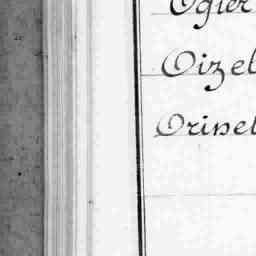 Ogier
Oizel
Orinel